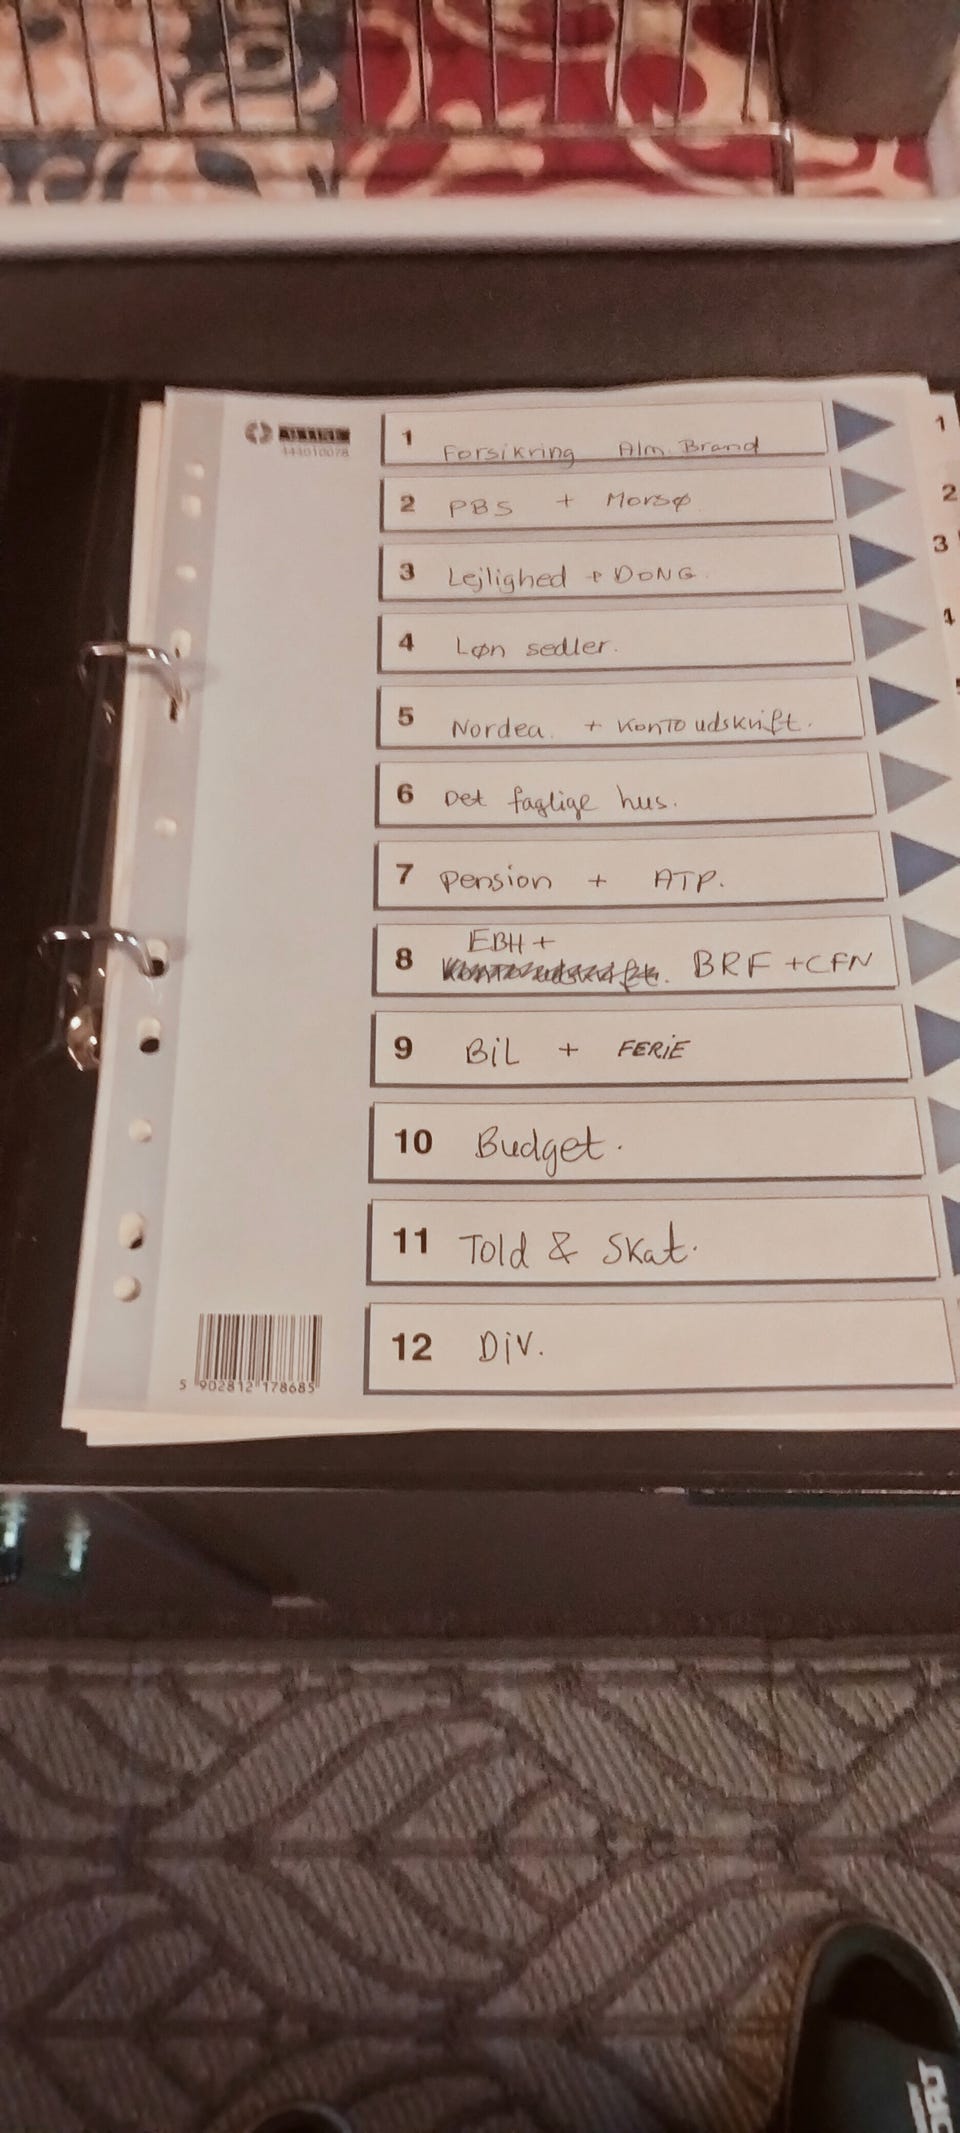 444010078
1 Forsikring Alm. Brand
2 PBS + Morsø
3 Lejlighed + DONG.
4 Løn sedler.
5 Nordea. + Kontoudskrift.
6 Det faglige hus.
7 Pension + ATP.
EBH +
8 Kontoudskrift. BRF + CFN
9 BiL + FERiE
10 Budget.
11 Told & Skat.
12 DiV.
5 902812 178685
1
2
3
4
5